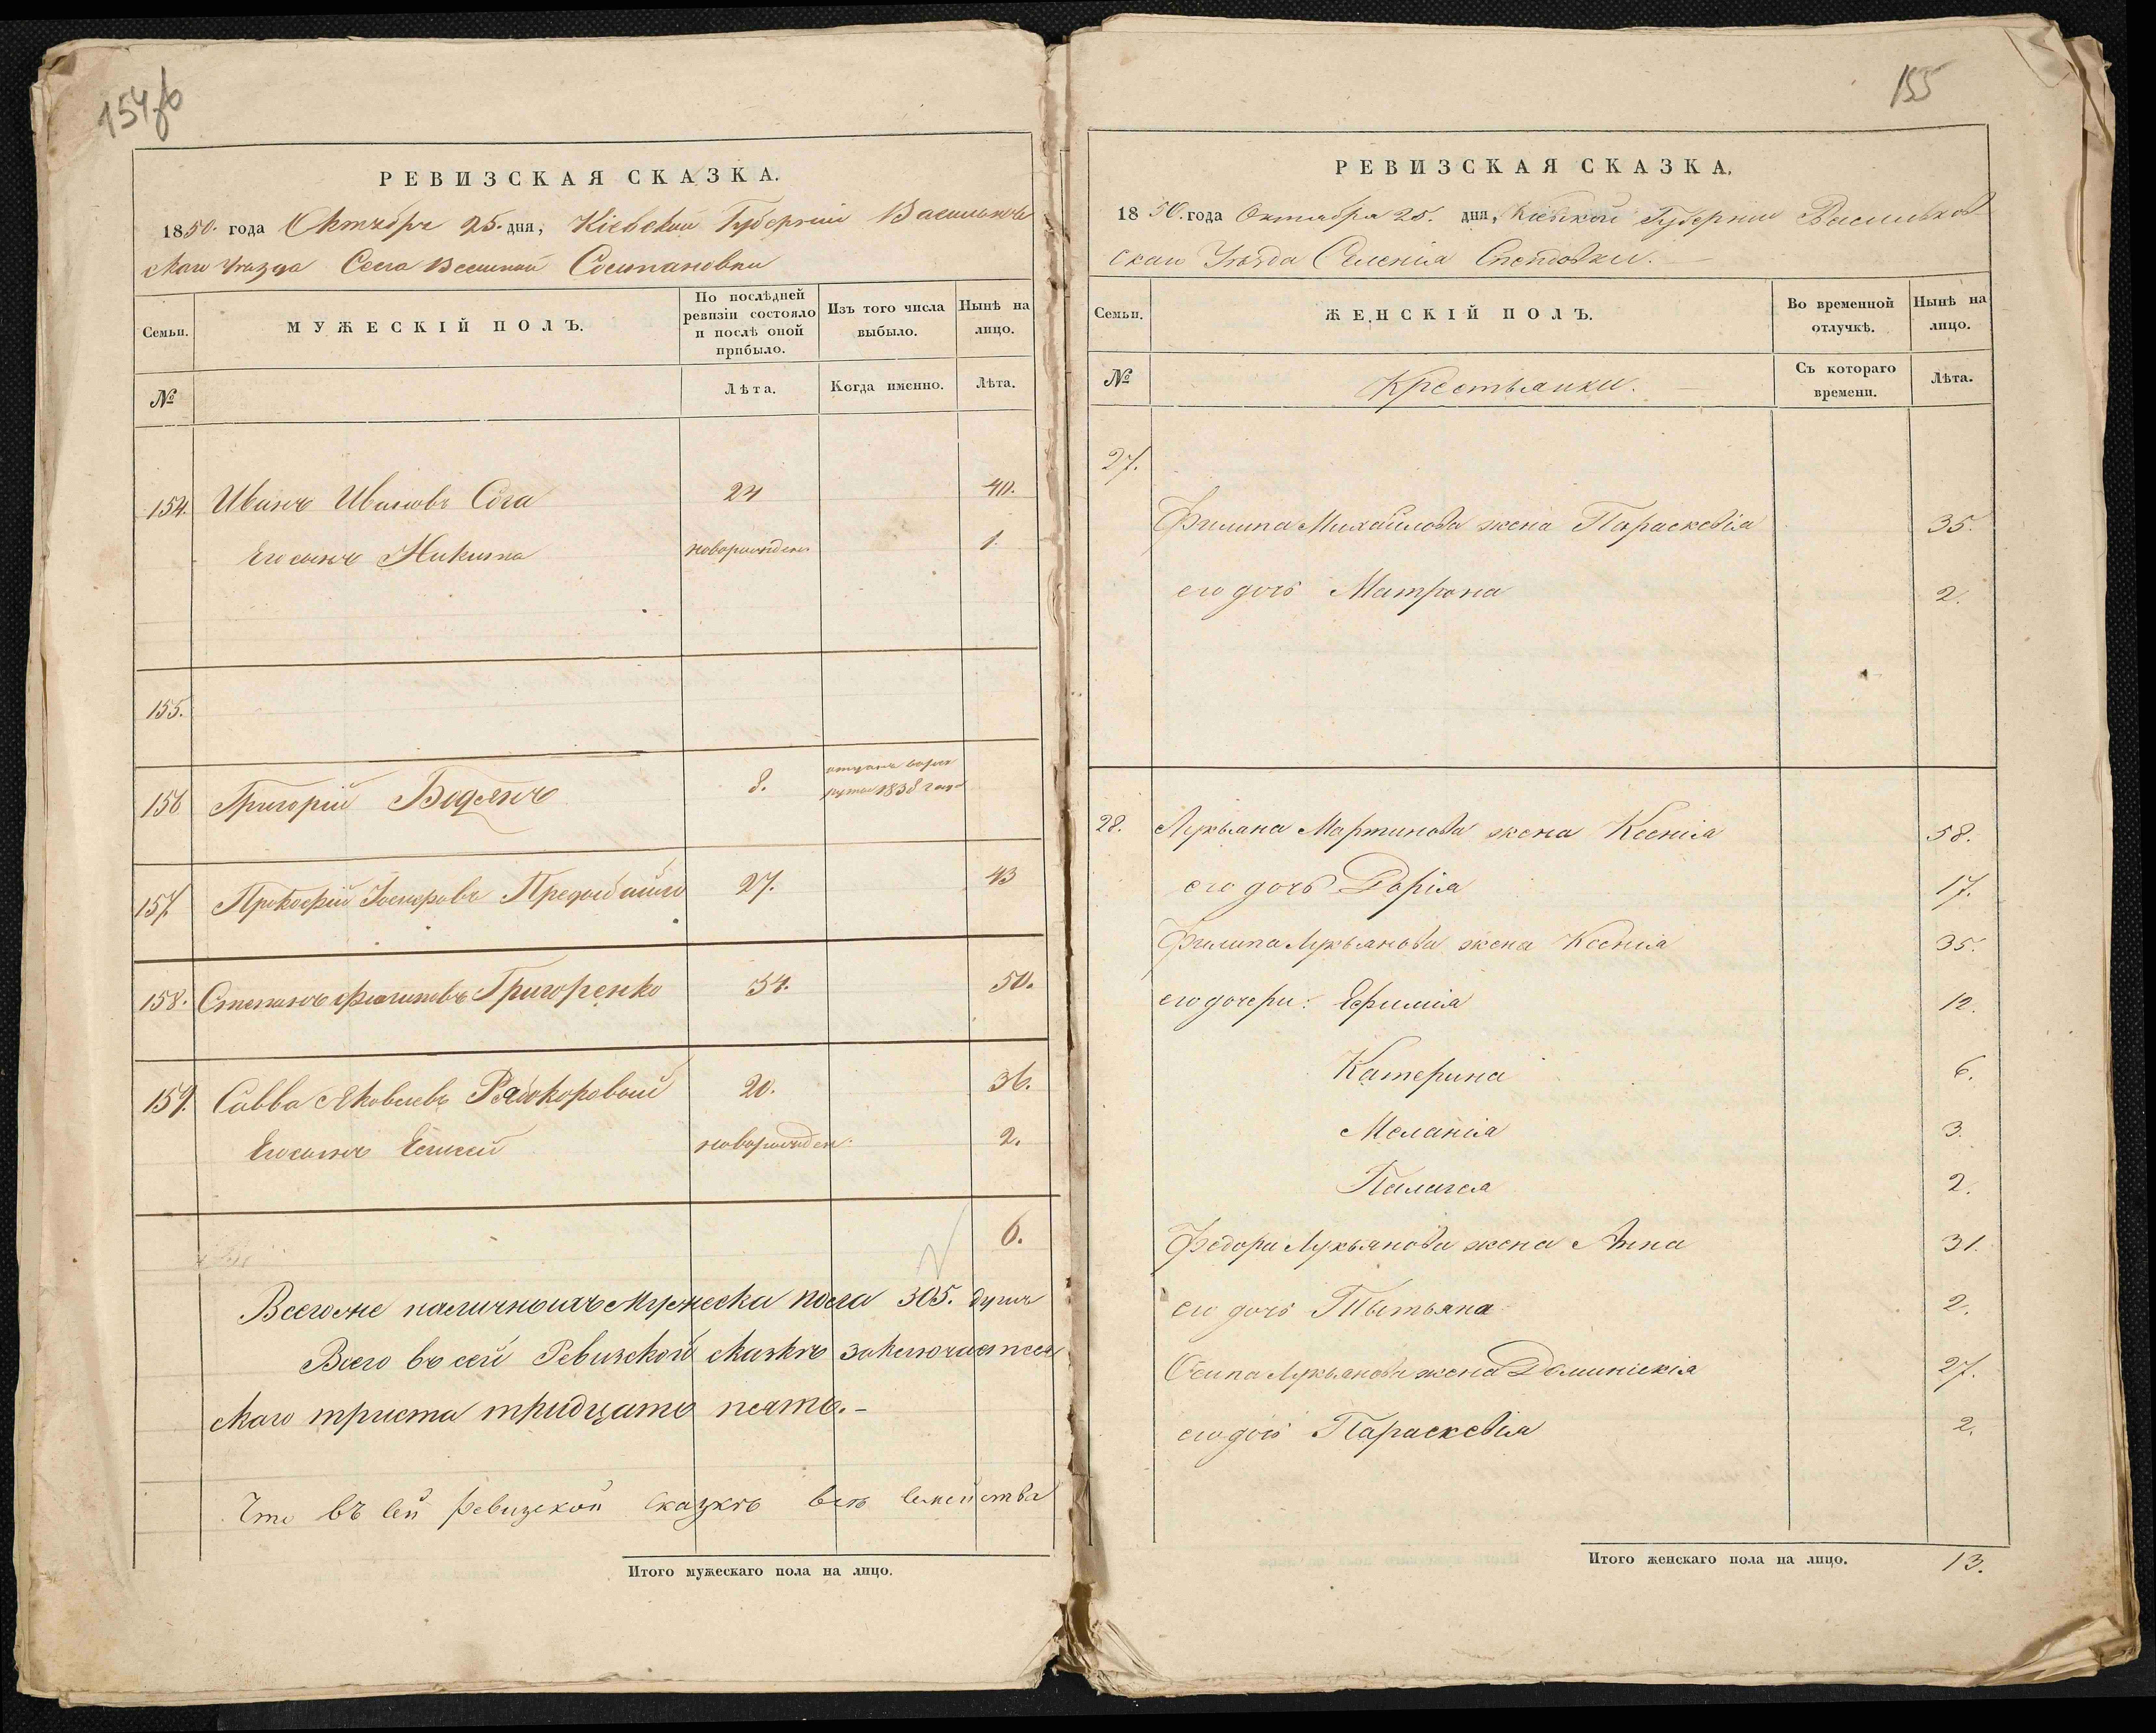 154 об
РЕВИЗСКАЯ СКАЗКА.
1850. года Октября 25. дня, Кіевской Губерніи Васильков
скаго Уѣзда Села Великой
Семьи.
МУЖЕСКІЙ ПОЛЪ.
По послѣдней ревизіи состояло и послѣ оной прибыло.
Изъ того числа выбыло.
Нынѣ на лицо.
№
Лѣта.
Когда именно.
Лѣта.
154. Иванъ Ивановъ 24 40.
Его сынъ Никита новорожден 1.
155.
156 Григорій 8. 1838 года
157 Прокофій 27. 43
158. Степанъ Григоренко 34. 50.
159. Савва Яковлевъ Рябокоровый 20. 36.
Его сынъ Елисей новорожден. 2.
6.
Всего же наличныхъ мужеска пола 305. душъ
Всего въ сей Ревизской сказкѣ заключается
скаго триста тридцать пять.-
Что въ сей ревизской сказкѣ всѣ семейства
Итого мужескаго пола на лицо.
155
РЕВИЗСКАЯ СКАЗКА.
1850. года Октября 25. дня, Кіевской Губерніи Васильков
скаго Уѣзда Селенія
Семьи.
ЖЕНСКІЙ ПОЛЪ.
Во временной отлучкѣ.
Нынѣ на лицо.
№
Крестьянки.
Съ котораго времени.
Лѣта.
27.
Филипа Михайлова жена Параскевія 35.
его дочь Матрона 2.
28. Лукьяна Мартинова жена Ксенія 58.
его дочь Дарія 17.
Филипа Лукьянова жена Ксенія 35.
его дочери: Ефимія 12.
Катерина 6.
Меланія 3.
Палагея 2.
Федора Лукьянова жена Анна 31.
его дочь Татьяна 2.
Осипа Лукьянова жена Доминикія 27.
его дочь Параскевія 2.
Итого женскаго пола на лицо. 13.